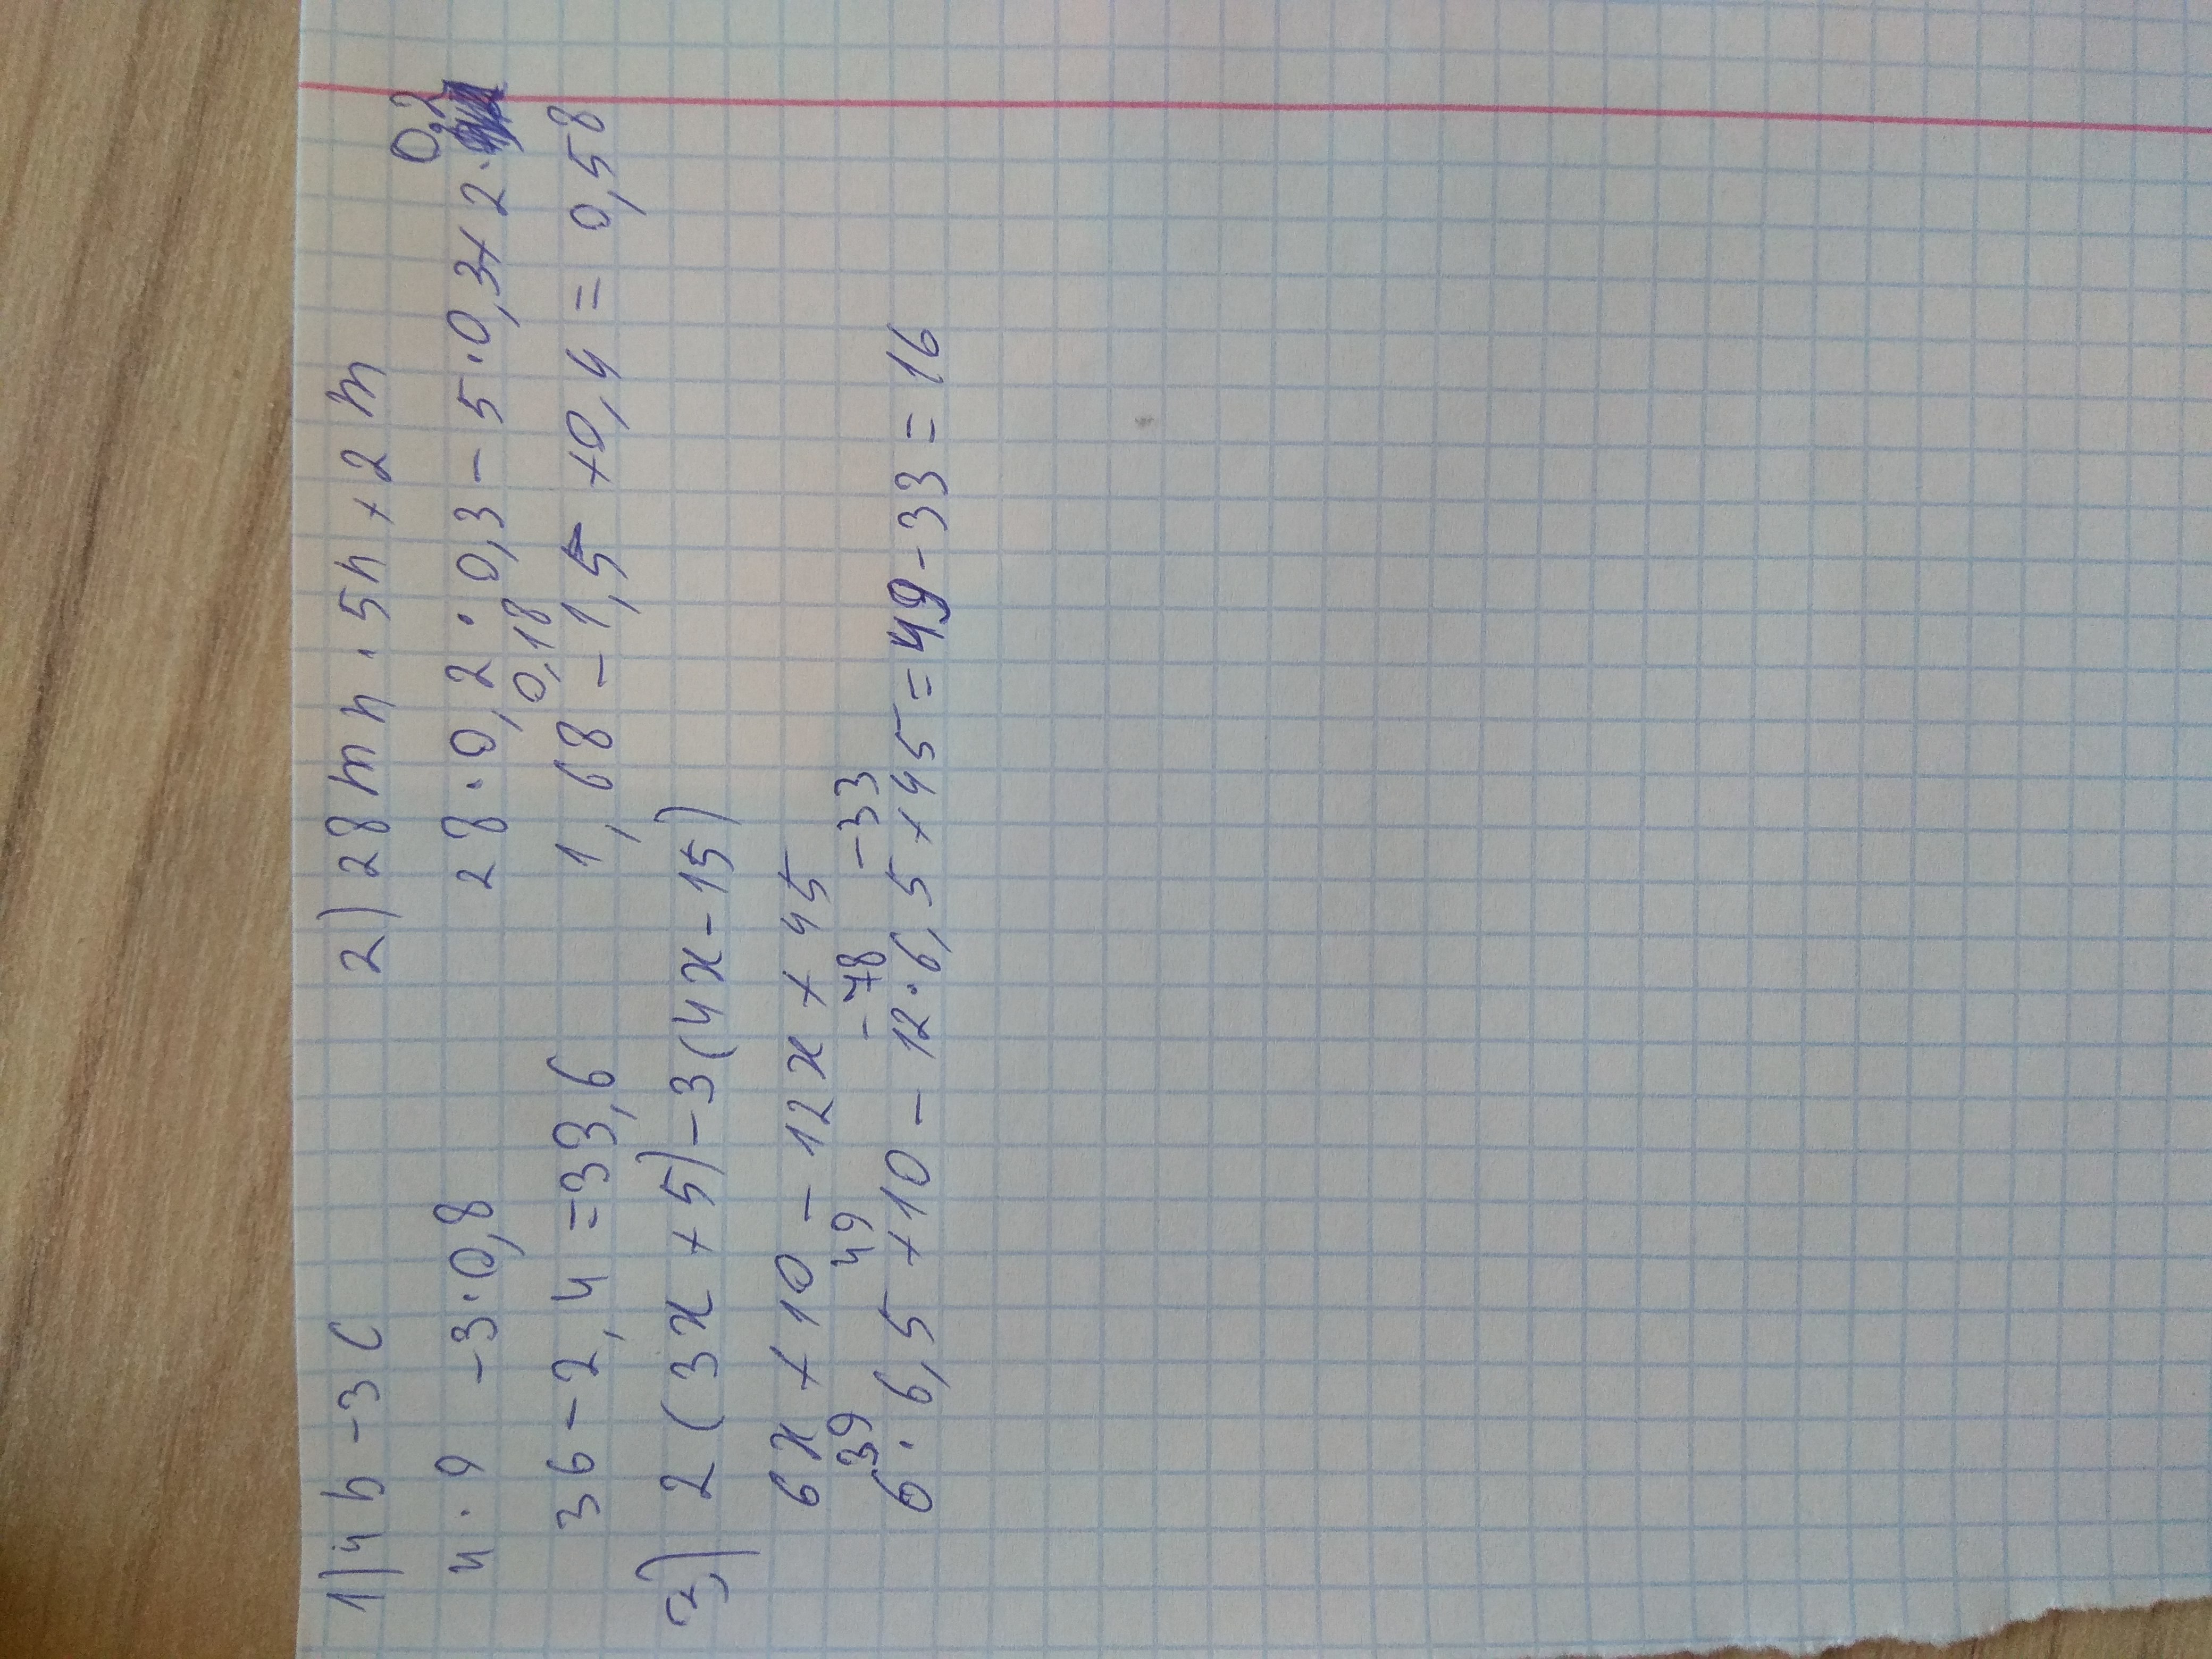 1) 4b - 3c 2) 28mn · 5n + 2m
4 · 9 - 3 · 0,8 28 · 0,2 · 0,3 - 5 · 0,3 + 2 · 0,2
0,18
36 - 2,4 = 33,6 1,68 - 1,5 + 0,4 = 0,58
3) 2(3x + 5) - 3(4x - 15)
6x + 10 - 12x + 45
39 49 -78 -33
6 · 6,5 + 10 - 12 · 6,5 + 45 = 49 - 33 = 16